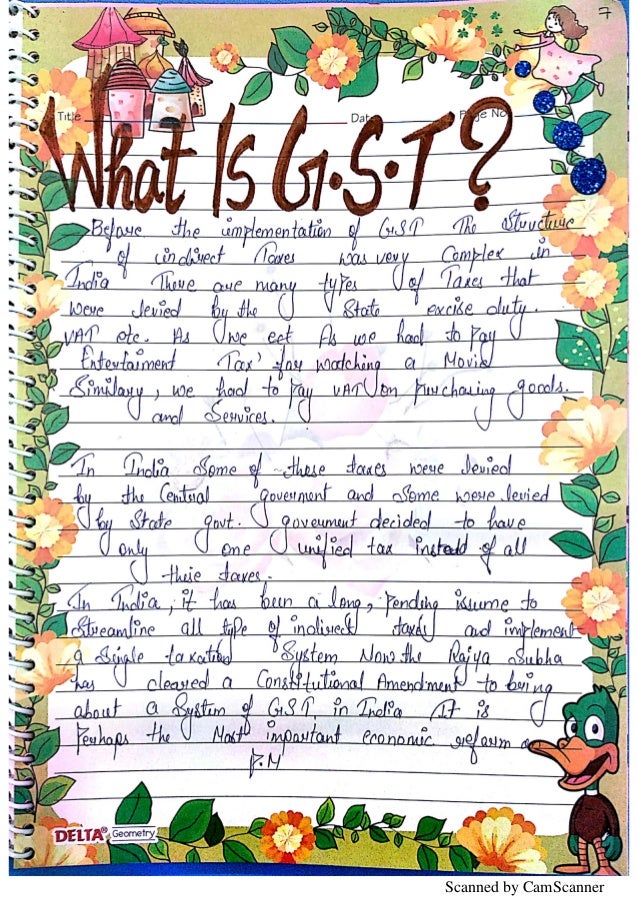 7
Title Date Page No.
What Is G.S.T?
Before the implementation of G.S.T The Structure
of indirect Taxes was very Complex in
India There are many types of Taxes that
were levied by the State excise duty.
VAT etc. As we eet As we had to pay
Entertaiment Tax' for watching a Movie
Similary, we had to pay VAT on purchasing goods.
and Services.
In India Some of these taxes were levied
by the Central goverment and Some were levied
by State govt. goverment decided to have
only one unified tax instead of all
their taxes.
In India, it has been a long, pending issume to
Streamline all type of indirect and implement
a Single taxation System Now the Rajya Subha
has cleared a Constitutional Amendment to bring
about a System of G.S.T, in India It is
Perhaps the Most important economic reform
P.M
DELTA® Geometry
Scanned by CamScanner